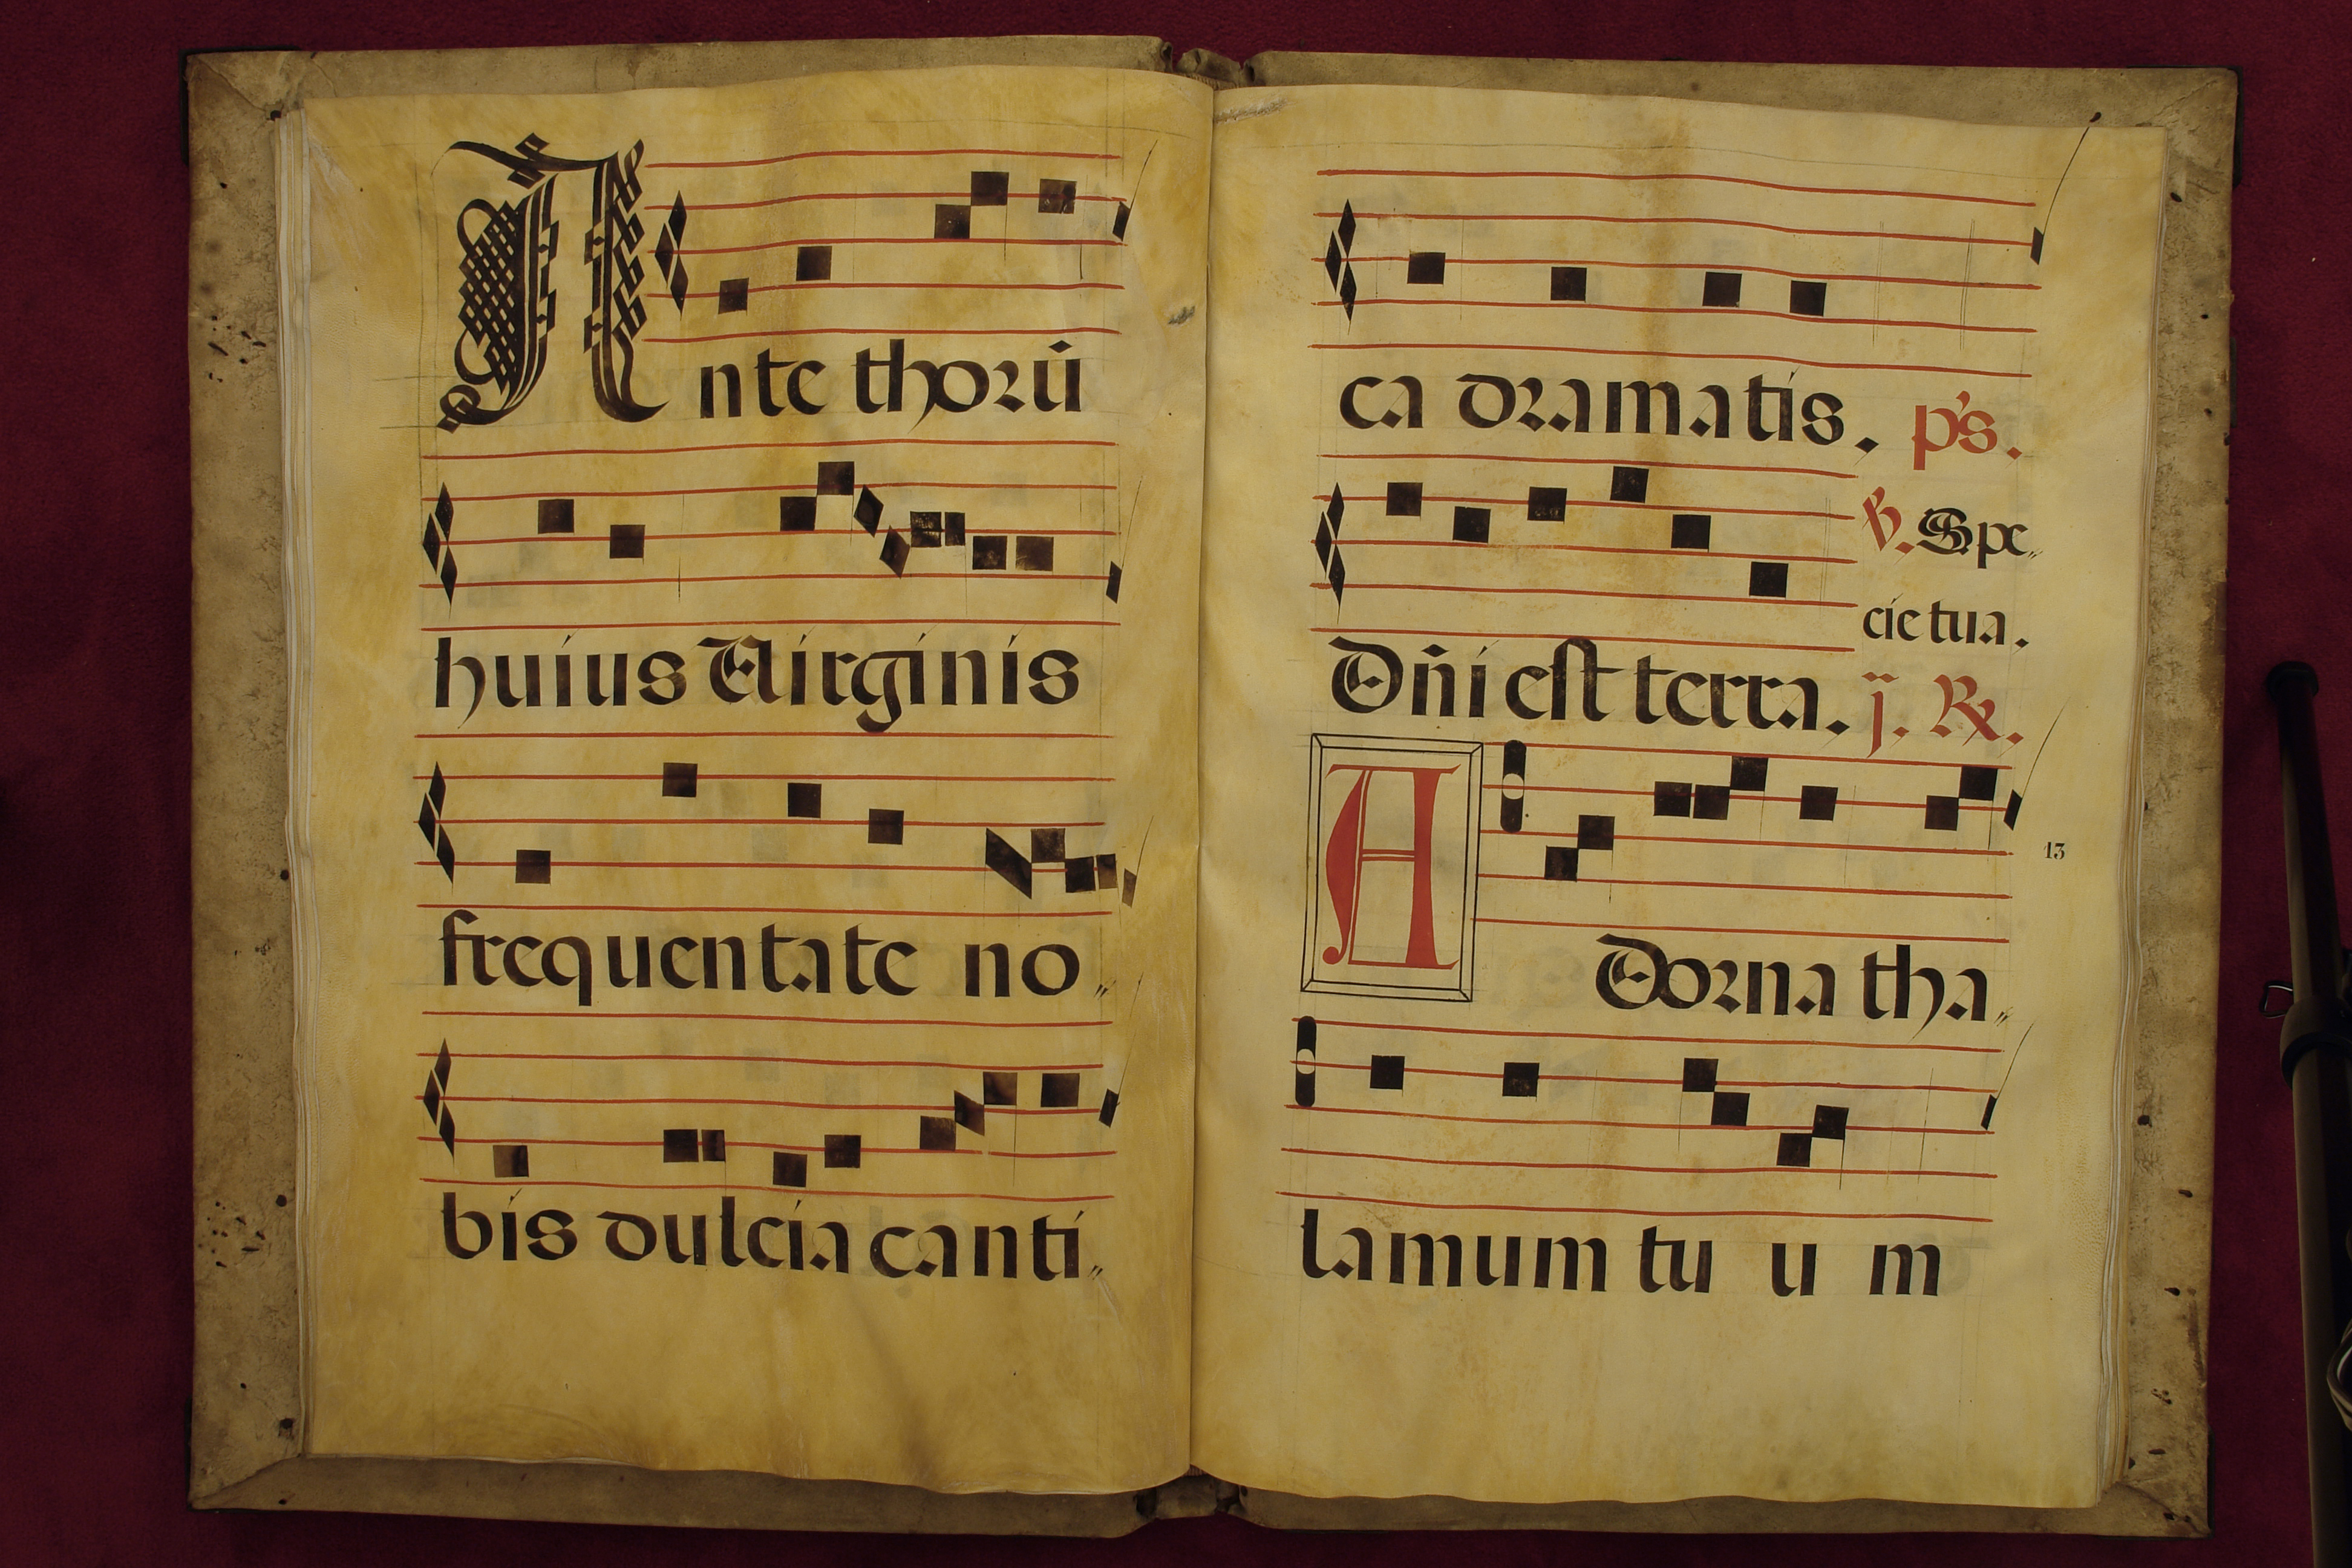 Ante thorū
huius Virginis
frequentate no„
bis dulcia canti„
ca dramatis. p's.
℣. Spe„
cie tua.
Dn̄i est terra. ij. ℟.
13
Adorna tha„
lamum tu u m